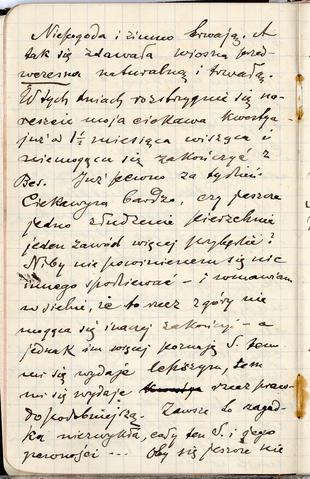 Niepogoda i zimno trwają. A
tak się zdawała wiosna przed-
wczesna naturalną i trwałą.
W tych dniach rozstrzygnie się na-
reszcie moja ciekawa kwestja
już w 1½ miesiąca wisząca i
niemogąca się zakończyć z
Bes. Już pewno za tydzień.
Ciekawym bardzo, czy jeszcze
jedno złudzenie pierzchnie
jeden zawód więcej przybędzie?
Niby nie powinienem się nic
innego spodziewać – i rozmawiam
w dzielnie, że to rzecz z góry nie
mogąca się inaczej zakończyć – a
jednak im więcej poznaję S. tem
mi się wydaje lepszym, tem
mi się wydaje rzecz praw-
dopodobniejszą. Zawsze to zagad-
ka niezwykła, cały ten S. i jego
pewności ... Oby się jeszcze nie